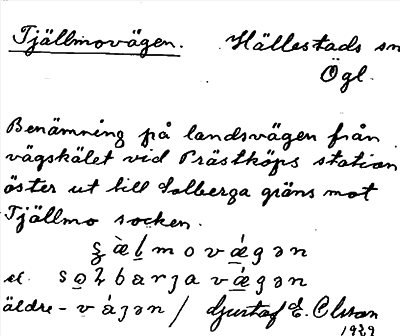 Tjällmovägen. Hällestads sn
Ögl.
Benämning på landsvägen från
vägskälet vid Prästköps station
öster ut till Solberga gräns mot
Tjällmo socken.
el.
äldre - Gustaf E. Olsson
1929